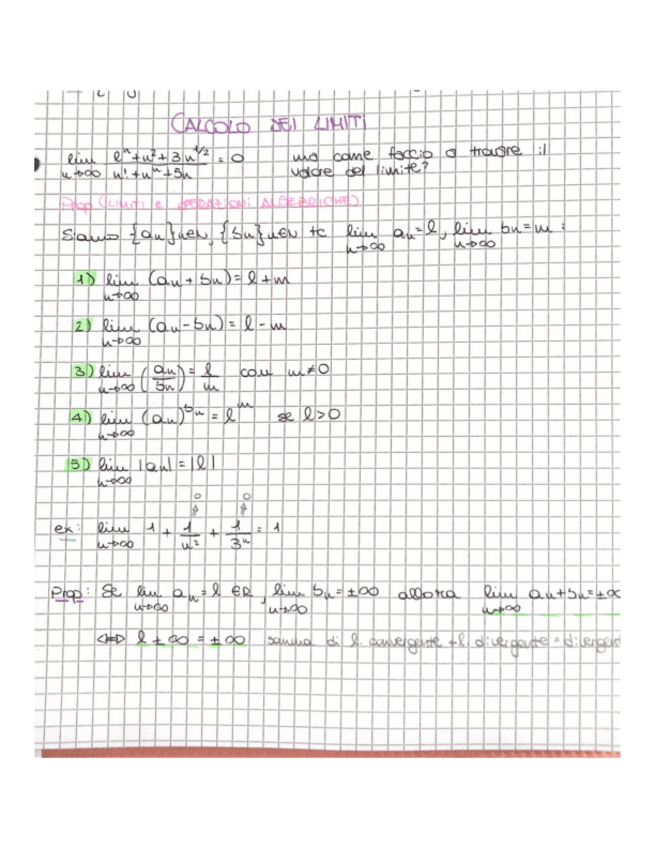 CALCOLO DEI LIMITI
lim n→∞ (e^n + n² + 3n^1/2)/(n! + n^n + 5n) = 0 ma come faccio a trovare il
valore del limite?
Prop (LIMITI E OPERAZIONI ALGEBRICHE)
Siano {an}n∈N, {bn}n∈N tc lim n→∞ an = l, lim n→∞ bn = m :
1) lim n→∞ (an + bn) = l + m
2) lim n→∞ (an - bn) = l - m
3) lim n→∞ (an/bn) = l/m con m≠0
4) lim n→∞ (an)^bn = l^m se l>0
5) lim n→∞ |an| = |l|
0 0
ex: lim n→∞ 1 + 1/n² + 1/3^n = 1
Prop: Se lim n→∞ an = l ∈R, lim n→∞ bn = ±∞ allora lim n→∞ an+bn = ±∞
⟺ l ± ∞ = ± ∞ somma di l. convergente + l. divergente = divergent